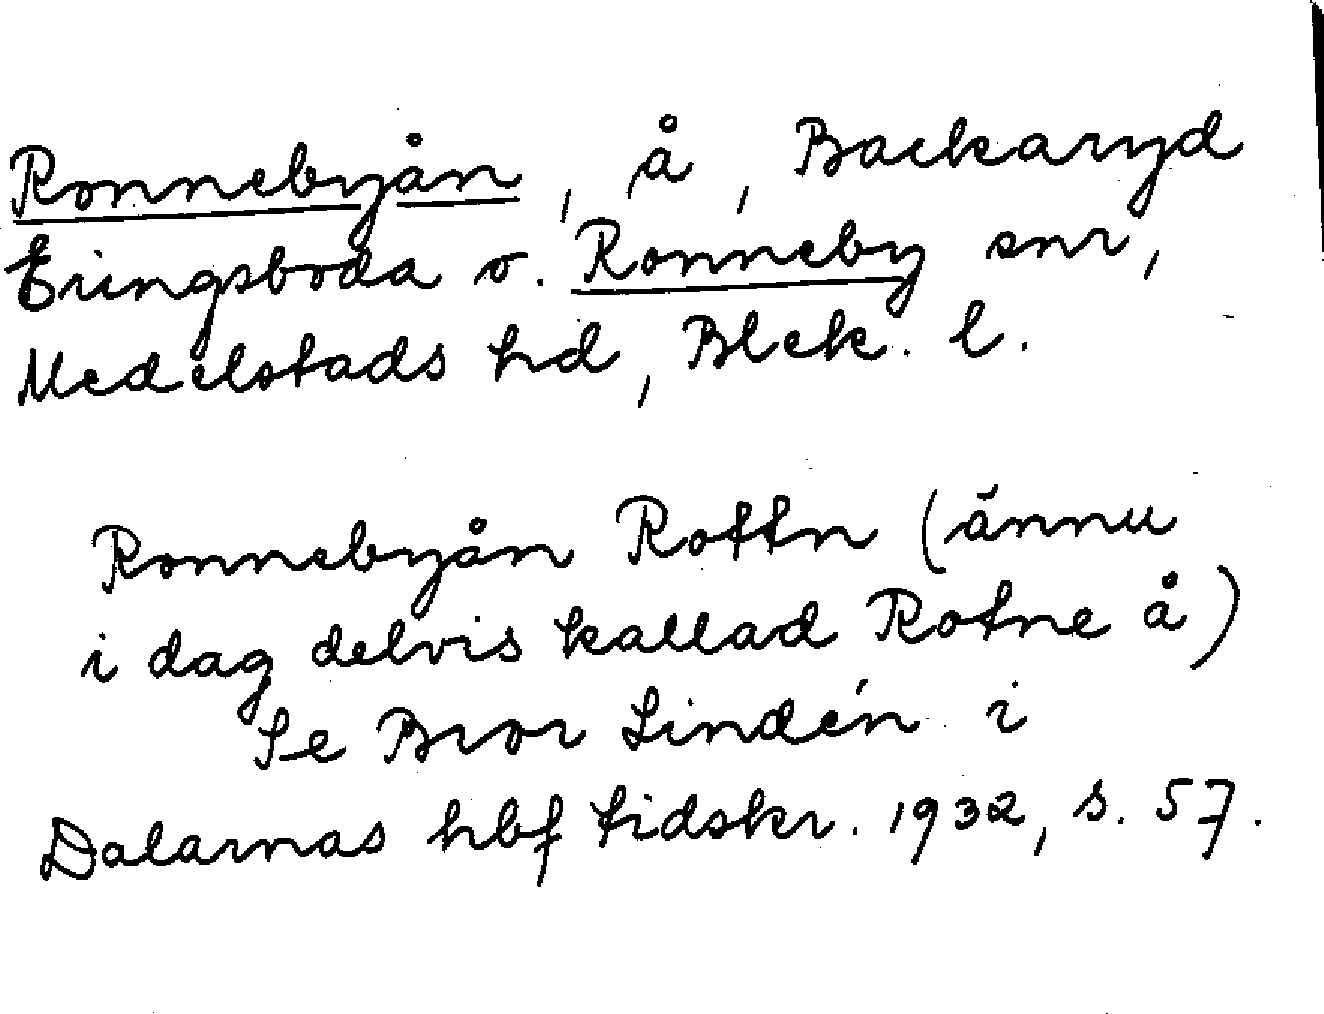 Ronnebyån, å, Backaryd
Eringsboda o. Ronneby snr,
Medelstads hd, Blek. l.
Ronnebyån Rottn (ännu
i dag delvis kallad Rotne å)
Se Bror Lindén i
Dalarnas hbf tidskr. 1932, s. 57.